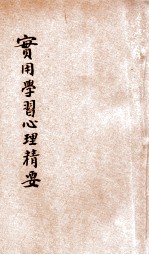 實用學習心理精要